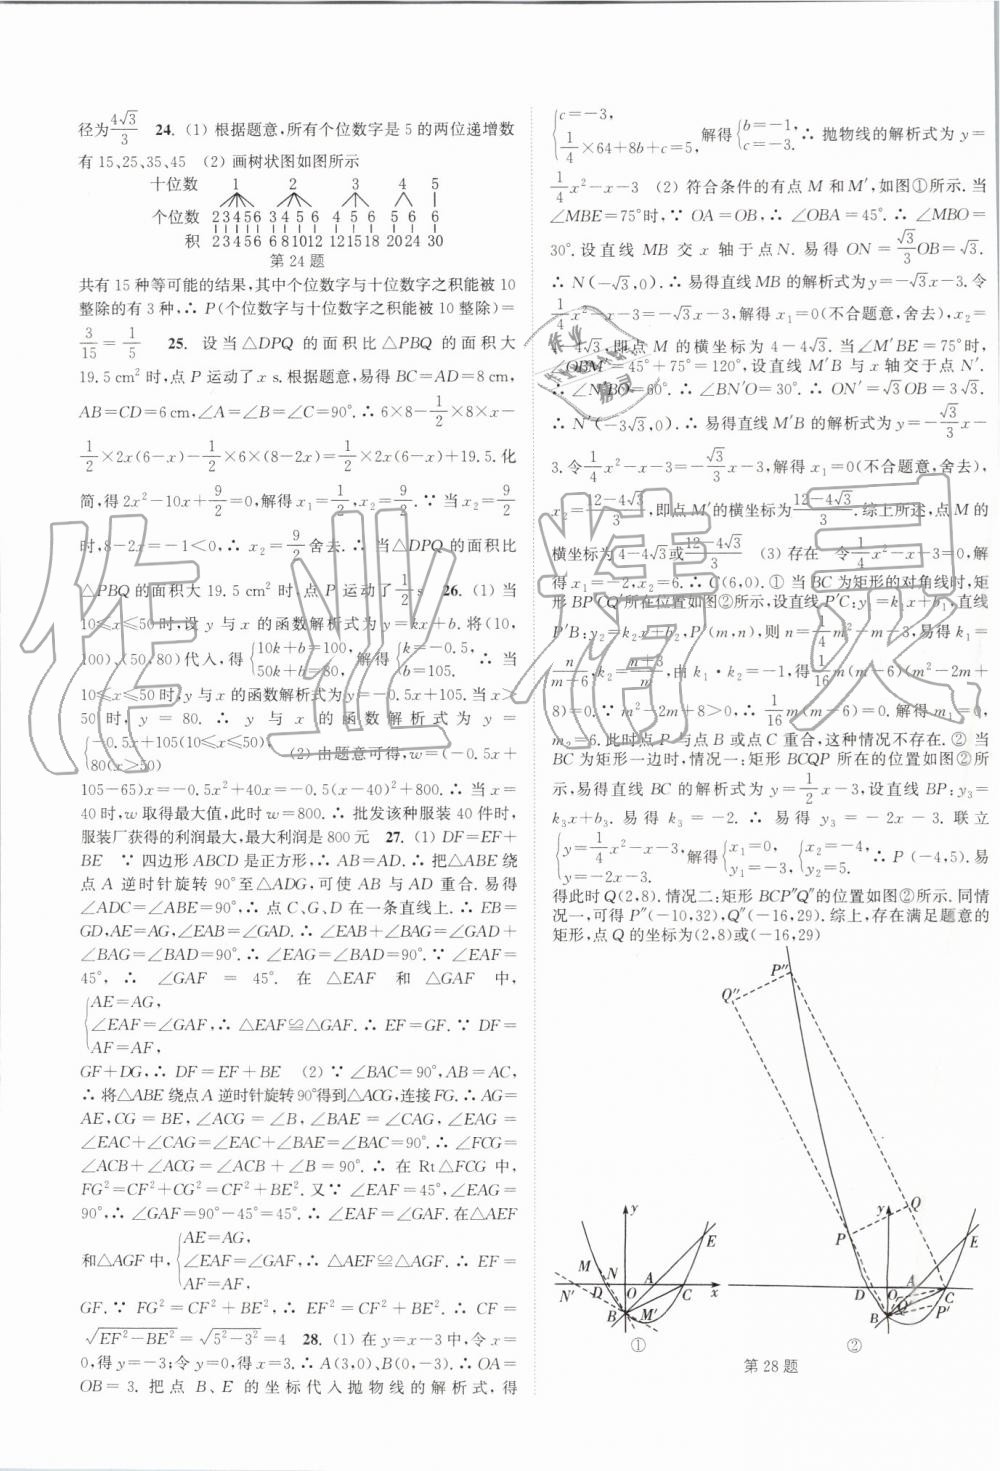 径为4√3/3　24. (1) 根据题意,所有个位数字是 5 的两位递增数
有 15、25、35、45　(2) 画树状图如图所示
十位数　1　2　3　4　5
个位数　2 3 4 5 6　3 4 5 6　4 5 6　5 6　6
积　2 3 4 5 6　6 8 10 12　12 15 18　20 24　30
第 24 题
共有 15 种等可能的结果,其中个位数字与十位数字之积能被 10
整除的有 3 种,∴ P(个位数字与十位数字之积能被 10 整除)=
3/15=1/5　25. 设当△DPQ 的面积比△PBQ 的面积大
19.5 cm²时,点 P 运动了 x s. 根据题意,易得 BC=AD=8 cm,
AB=CD=6 cm,∠A=∠B=∠C=90°.∴ 6×8-1/2×8×x-
1/2×2x(6-x)-1/2×6×(8-2x)=1/2×2x(6-x)+19.5. 化
简,得 2x²-10x+9/2=0,解得 x₁=1/2,x₂=9/2.∵ 当 x=9/2
时,8-2x=-1<0,∴ x₂=9/2舍去.∴ 当△DPQ 的面积比
△PBQ 的面积大 19.5 cm² 时,点 P 运动了1/2 s　26. (1) 当
10≤x≤50 时,设 y 与 x 的函数解析式为 y=kx+b. 将(10,
100)、(50,80)代入,得{10k+b=100, 50k+b=80, 解得{k=-0.5, b=105. ∴ 当
10≤x≤50 时,y 与 x 的函数解析式为 y=-0.5x+105. 当 x>
50 时, y = 80. ∴ y 与 x 的函数解析式为 y=
{-0.5x+105(10≤x≤50), 80(x>50)　(2) 由题意可得,w=(-0.5x+
105-65)x=-0.5x²+40x=-0.5(x-40)²+800.∴ 当 x=
40 时,w 取得最大值,此时 w=800.∴ 批发该种服装 40 件时,
服装厂获得的利润最大,最大利润是 800 元　27. (1) DF=EF+
BE　∵ 四边形 ABCD 是正方形,∴ AB=AD.∴ 把△ABE 绕
点 A 逆时针旋转 90°至△ADG,可使 AB 与 AD 重合. 易得
∠ADC=∠ABE=90°.∴ 点 C、G、D 在一条直线上.∴ EB=
GD,AE=AG,∠EAB=∠GAD.∴ ∠EAB+∠BAG=∠GAD+
∠BAG=∠BAD=90°.∴ ∠EAG=∠BAD=90°.∵ ∠EAF=
45°,∴ ∠GAF = 45°. 在 △EAF 和 △GAF 中,
{AE=AG, ∠EAF=∠GAF, AF=AF, ∴ △EAF≌△GAF.∴ EF=GF.∵ DF=
GF+DG,∴ DF=EF+BE　(2) ∵ ∠BAC=90°,AB=AC,
∴ 将△ABE 绕点 A 逆时针旋转 90°得到△ACG,连接 FG.∴ AG=
AE,CG = BE,∠ACG = ∠B,∠BAE = ∠CAG,∠EAG =
∠EAC+∠CAG=∠EAC+∠BAE=∠BAC=90°.∴ ∠FCG=
∠ACB+∠ACG = ∠ACB+∠B = 90°.∴ 在 Rt△FCG 中,
FG²=CF²+CG²=CF²+BE². 又∵ ∠EAF=45°,∠EAG=
90°,∴ ∠GAF=90°-45°=45°.∴ ∠EAF=∠GAF. 在△AEF
和△AGF 中,{AE=AG, ∠EAF=∠GAF, AF=AF, ∴ △AEF≌△AGF.∴ EF=
GF.∵ FG²=CF²+BE²,∴ EF²=CF²+BE².∴ CF=
√(EF²-BE²)=√(5²-3²)=4　28. (1) 在 y=x-3 中,令 x=
0,得 y=-3;令 y=0,得 x=3.∴ A(3,0)、B(0,-3).∴ OA=
OB=3. 把点 B、E 的坐标代入抛物线的解析式,得
{c=-3, 1/4×64+8b+c=5, 解得{b=-1, c=-3. ∴ 抛物线的解析式为 y=
1/4x²-x-3　(2) 符合条件的有点 M 和 M′,如图①所示. 当
∠MBE=75°时,∵ OA=OB,∴ ∠OBA=45°.∴ ∠MBO=
30°. 设直线 MB 交 x 轴于点N. 易得 ON=√3/3OB=√3.
∴ N(-√3,0).∴ 易得直线MB的解析式为y=-√3x-3. 令
1/4x²-x-3=-√3x-3,解得 x₁=0(不合题意,舍去),x₂=
4-4√3,即点 M 的横坐标为 4-4√3. 当∠M′BE=75°时,
∠OBM′=45°+75°=120°,设直线M′B 与 x 轴交于点 N′.
∴ ∠N′BO=60°.∴ ∠BN′O=30°.∴ ON′=√3OB=3√3.
∴ N′(-3√3,0).∴ 易得直线 M′B 的解析式为y=-√3/3x-
3. 令1/4x²-x-3=-√3/3x-3,解得 x₁=0(不合题意,舍去),
x₂=12-4√3/3,即点M′的横坐标为12-4√3/3. 综上所述,点 M 的
横坐标为4-4√3或12-4√3/3　(3) 存在　令1/4x²-x-3=0,解
得 x₁=-2,x₂=6.∴ C(6,0). ① 当 BC 为矩形的对角线时,矩
形 BP′CQ′所在位置如图②所示,设直线P′C:y₁=k₁x+b₁,直线
P′B:y₂=k₂x+b₂,P′(m,n),则 n=1/4m²-m-3,易得 k₁=
n/m-6,k₂=n+3/m.由 k₁·k₂=-1,得1/16m(m-6)(m²-2m+
8)=0.∵ m²-2m+8>0,∴ 1/16m(m-6)=0. 解得 m₁=0,
m₂=6. 此时点 P′与点 B 或点 C 重合,这种情况不存在. ② 当
BC 为矩形一边时,情况一:矩形 BCQP 所在的位置如图②所
示,易得直线 BC 的解析式为 y=1/2x-3,设直线 BP:y₃=
k₃x+b₃. 易得 k₃=-2.∴ 易得 y₃=-2x-3. 联立
{y=1/4x²-x-3, y=-2x-3. 解得{x₁=0, y₁=-3, {x₂=-4, y₂=5. ∴ P(-4,5). 易
得此时 Q(2,8). 情况二:矩形 BCP″Q″的位置如图②所示. 同情
况一,可得 P″(-10,32),Q″(-16,29). 综上,存在满足题意的
矩形,点 Q 的坐标为(2,8)或(-16,29)
P″
Q″
y　E　M　N　A　N′　D　O　C　x　B　M′
①
y　Q　P　E　D　O　A　C　B　Q′　P′
②
第 28 题
作业精灵